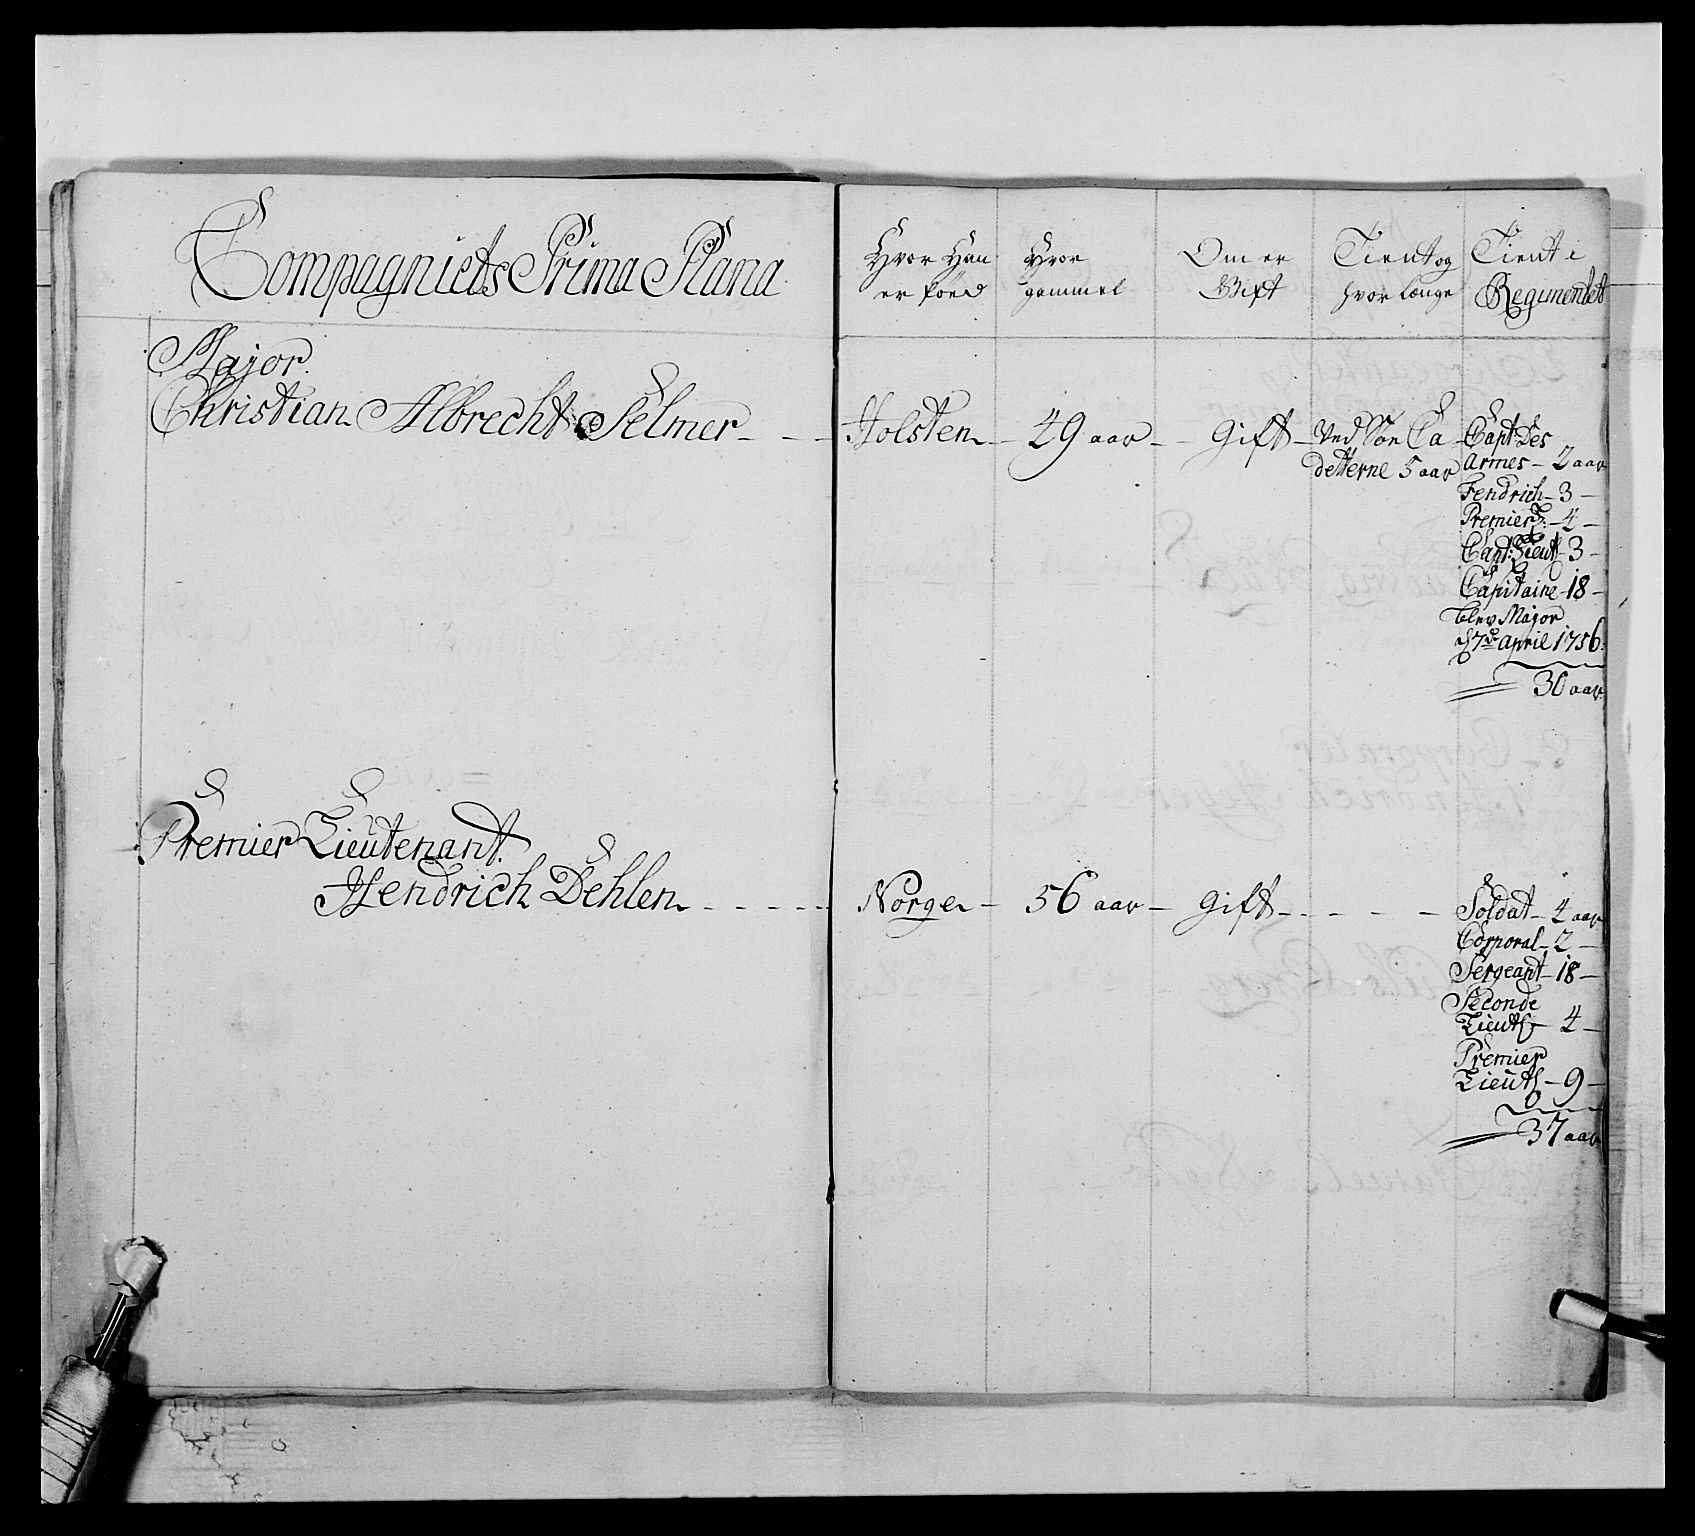 Compagniets Prima Plana
Hvor Han er föed
Hvor gammel
Om er Gift
Tient og hvor længe
Tient i Regimentet
Major.
Christian Albrecht Selmer - - -
Holsten -
49 aar -
Gift -
Ved Söe Ca
detterne 5 aar
Capt: Des
Armes - 2 aar
Fendrich - 3 -
Premier L: - 4 -
Capt: Lieut - 3 -
Capitaine - 18 -
blev Major
d 7de April 1756.
30 aar
Premier Lieutenant.
Hendrich Dehlen - - - - -
Norge -
56 aar -
Gift - - - - -
Soldat - 4 aar
Corporal - 2 -
Sergeant - 18 -
Seconde
Lieut - 4 -
Premier
Lieut - 9 -
37 aar